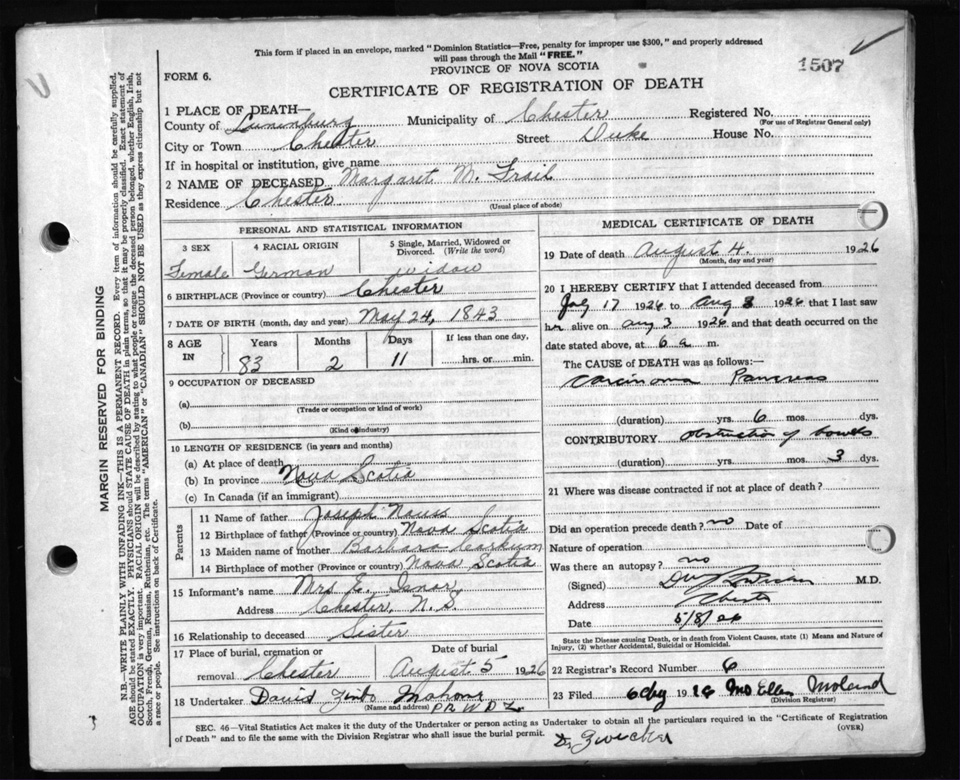 This form if placed in an envelope, marked "Dominion Statistics—Free, penalty for improper use $300," and properly addressed
will pass through the Mail "FREE."
PROVINCE OF NOVA SCOTIA
1507
FORM 6.
CERTIFICATE OF REGISTRATION OF DEATH
1 PLACE OF DEATH—
County of Lunenburg Municipality of Chester Registered No.
(For use of Registrar General only)
City or Town Chester Street Duke House No.
If in hospital or institution, give name
2 NAME OF DECEASED Margaret M. Frail
Residence Chester
(Usual place of abode)
PERSONAL AND STATISTICAL INFORMATION
3 SEX 4 RACIAL ORIGIN 5 Single, Married, Widowed or Divorced. (Write the word)
Female German widow
6 BIRTHPLACE (Province or country) Chester
7 DATE OF BIRTH (month, day and year) May 24, 1843
8 AGE IN Years Months Days If less than one day,
83 2 11 hrs. or min.
9 OCCUPATION OF DECEASED
(a)
(Trade or occupation or kind of work)
(b)
(Kind of industry)
10 LENGTH OF RESIDENCE (in years and months)
(a) At place of death
(b) In province Nova Scotia
(c) In Canada (if an immigrant)
Parents
11 Name of father Joseph Nauss
12 Birthplace of father (Province or country) Nova Scotia
13 Maiden name of mother Barbara
14 Birthplace of mother (Province or country) Nova Scotia
15 Informant's name Mrs E. Isnor
Address Chester, N.S.
16 Relationship to deceased Sister
17 Place of burial, cremation or removal Chester Date of burial August 5 1926
18 Undertaker David Mahone
(Name and address)
MEDICAL CERTIFICATE OF DEATH
19 Date of death August 4. 1926
(Month, day and year)
20 I HEREBY CERTIFY that I attended deceased from
July 17 1926 to Aug 3 1926 that I last saw
her alive on Aug 3 1926 and that death occurred on the
date stated above, at 6 a m.
The CAUSE of DEATH was as follows:—
Carcinoma Pancreas
(duration) yrs. 6 mos. dys.
CONTRIBUTORY Obstruction of bowels
(duration) yrs. mos. 3 dys.
21 Where was disease contracted if not at place of death?
Did an operation precede death? no Date of
Nature of operation
Was there an autopsy? no
(Signed) M.D.
Address Chester
Date 5/8/26
State the Disease causing Death, or in death from Violent Causes, state (1) Means and Nature of
Injury, (2) whether Accidental, Suicidal or Homicidal.
22 Registrar's Record Number 6
23 Filed Mrs Ellen
(Division Registrar)
SEC. 46—Vital Statistics Act makes it the duty of the Undertaker or person acting as Undertaker to obtain all the particulars required in the "Certificate of Registration
of Death" and to file the same with the Division Registrar who shall issue the burial permit.
(OVER)
Dr Zwicker
MARGIN RESERVED FOR BINDING
N.B.—WRITE PLAINLY WITH UNFADING INK—THIS IS A PERMANENT RECORD. Every item of information should be carefully supplied.
AGE should be stated EXACTLY. PHYSICIANS should STATE CAUSE OF DEATH in plain terms, so that it may be properly classified. Exact statement of
OCCUPATION is very important. RACIAL ORIGIN will be described by stating to what people or tongue the deceased person belonged, whether English, Irish,
Scotch, French, German, Russian, Ruthenian, etc. The terms "AMERICAN" or "CANADIAN" SHOULD NOT BE USED as they express citizenship but not
a race or people. See instructions on back of Certificate.